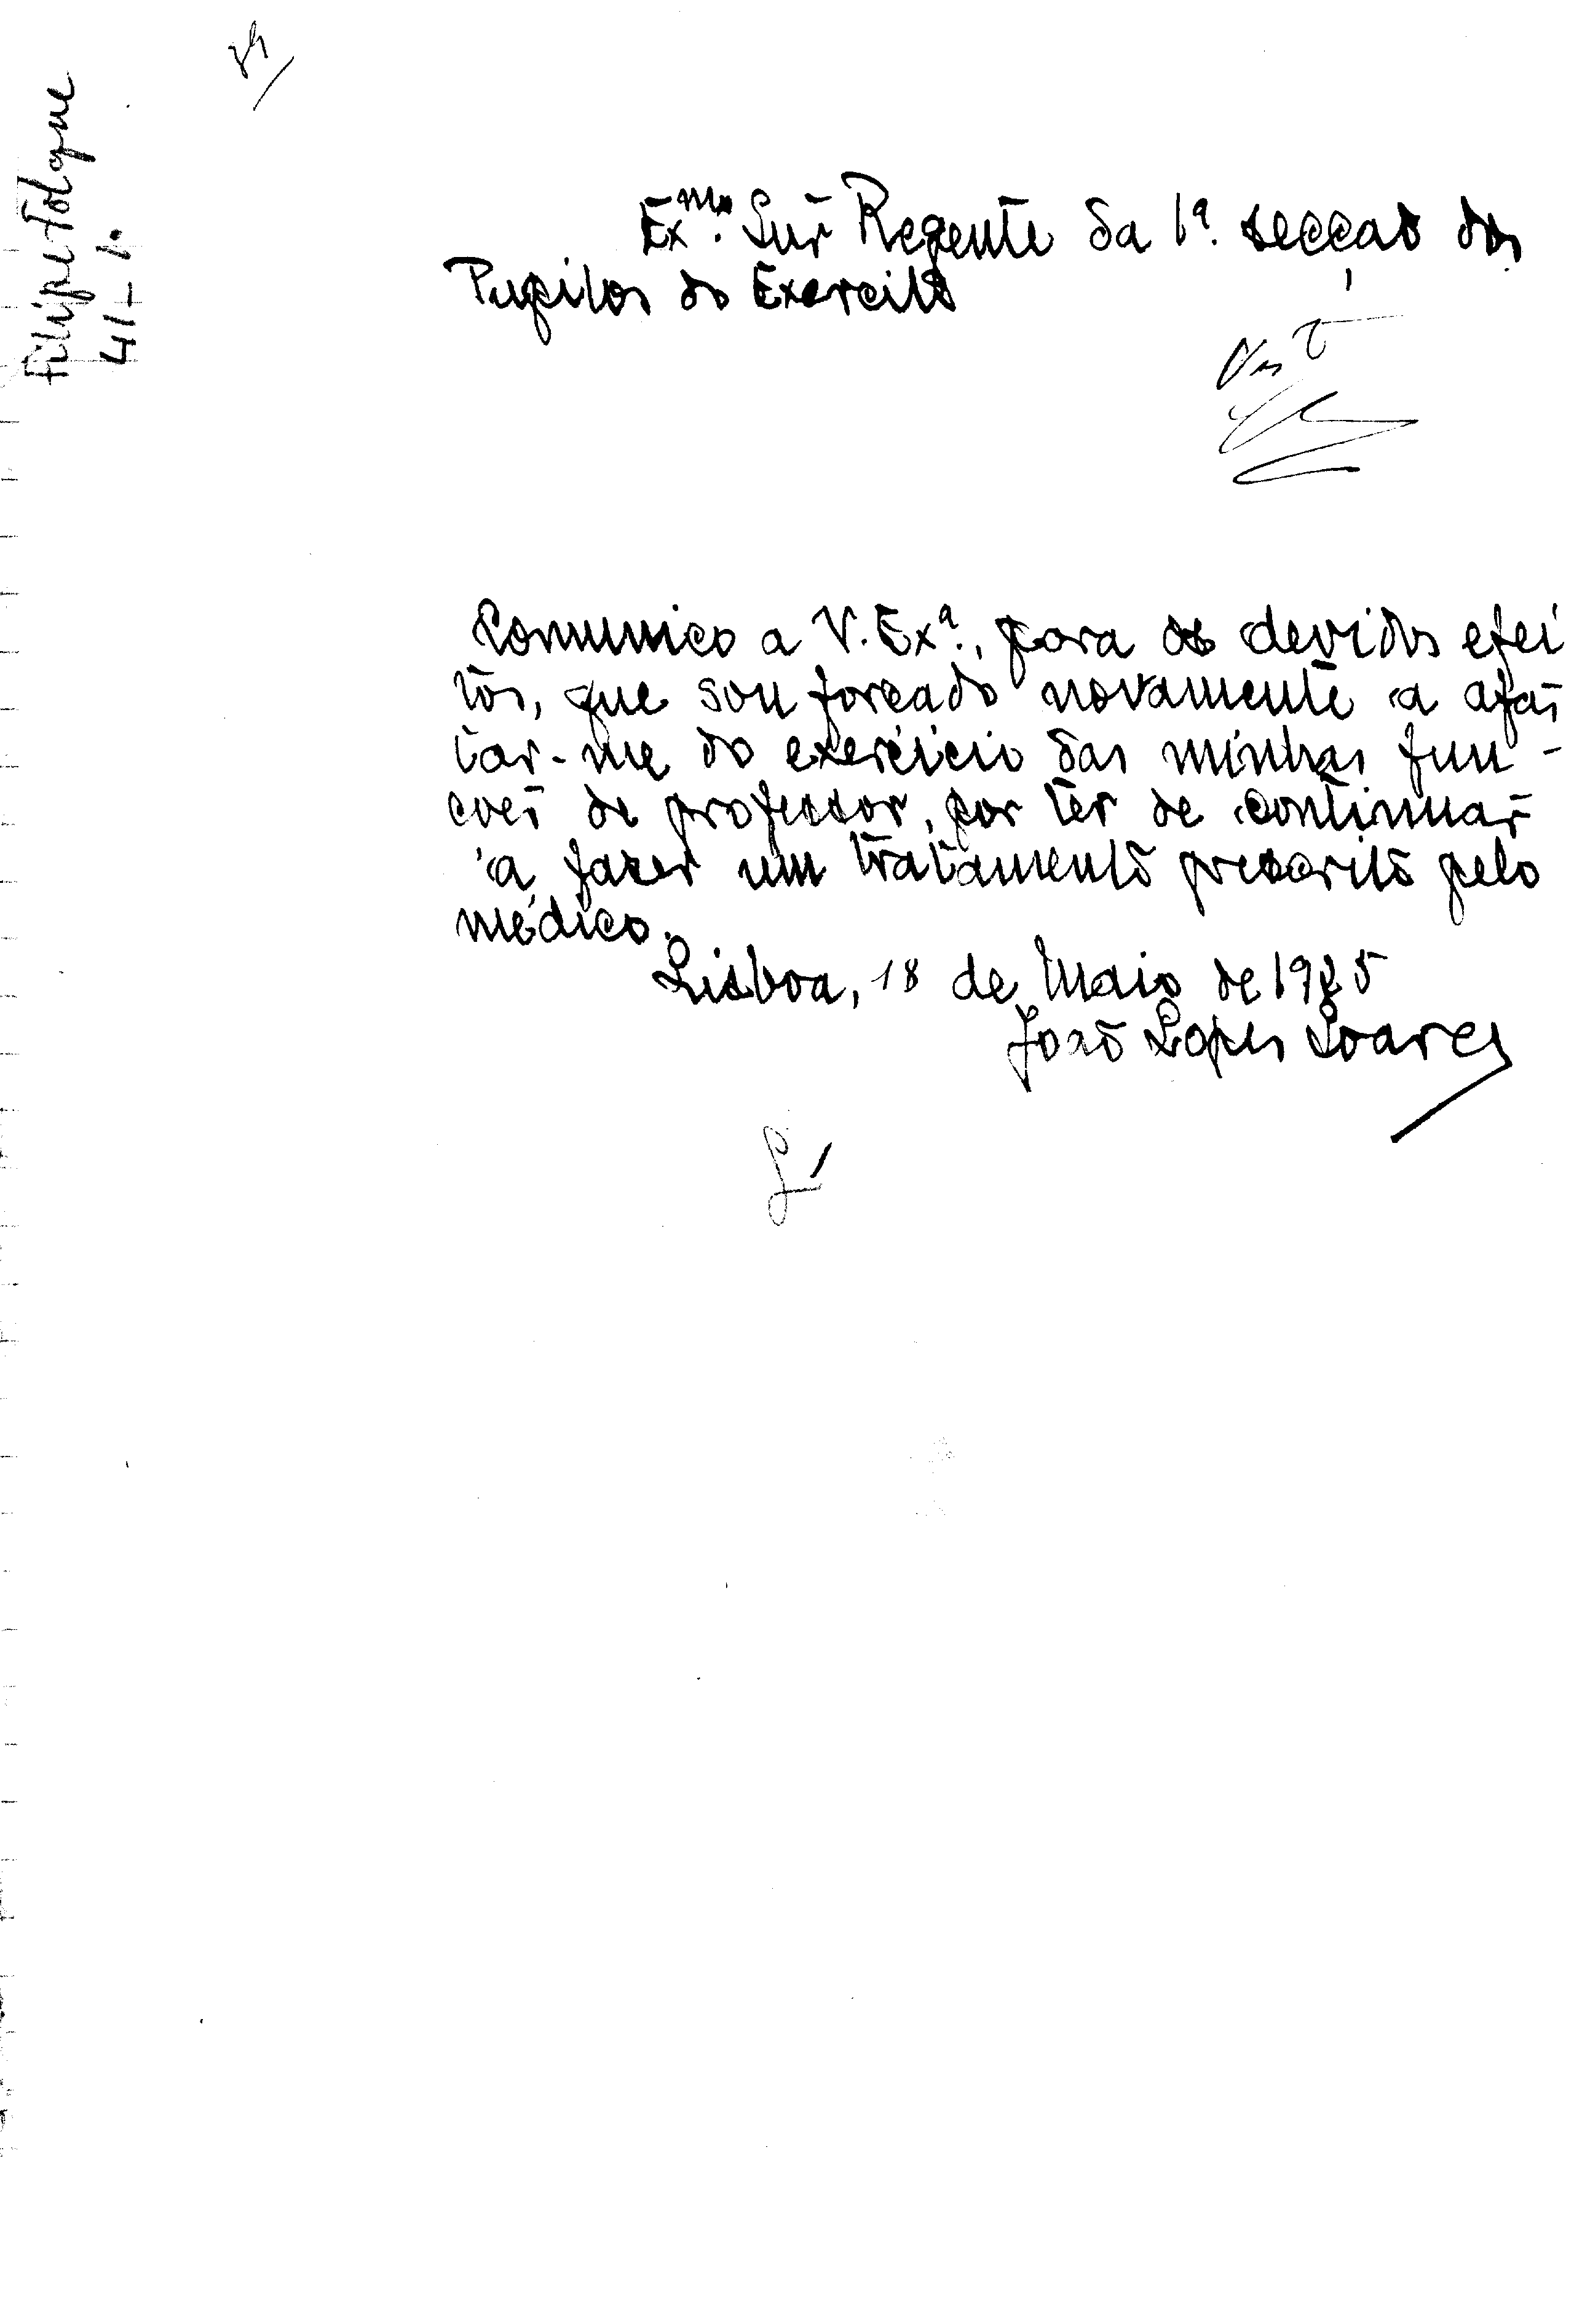 Filipe Folque
41-1.
Ex.mo Snr Regente da 1ª. secção dos
Pupilos do Exercito
Visto
Comunico a V. Exª., para os devidos efei
tos, que sou forçado novamente a afas
tar-me do exercicio das minhas fun-
coes de professor, por ter de continuar
a fazer um tratamento prescrito pelo
médico.
Lisboa, 18 de Maio de 1925
João Lopes Soares